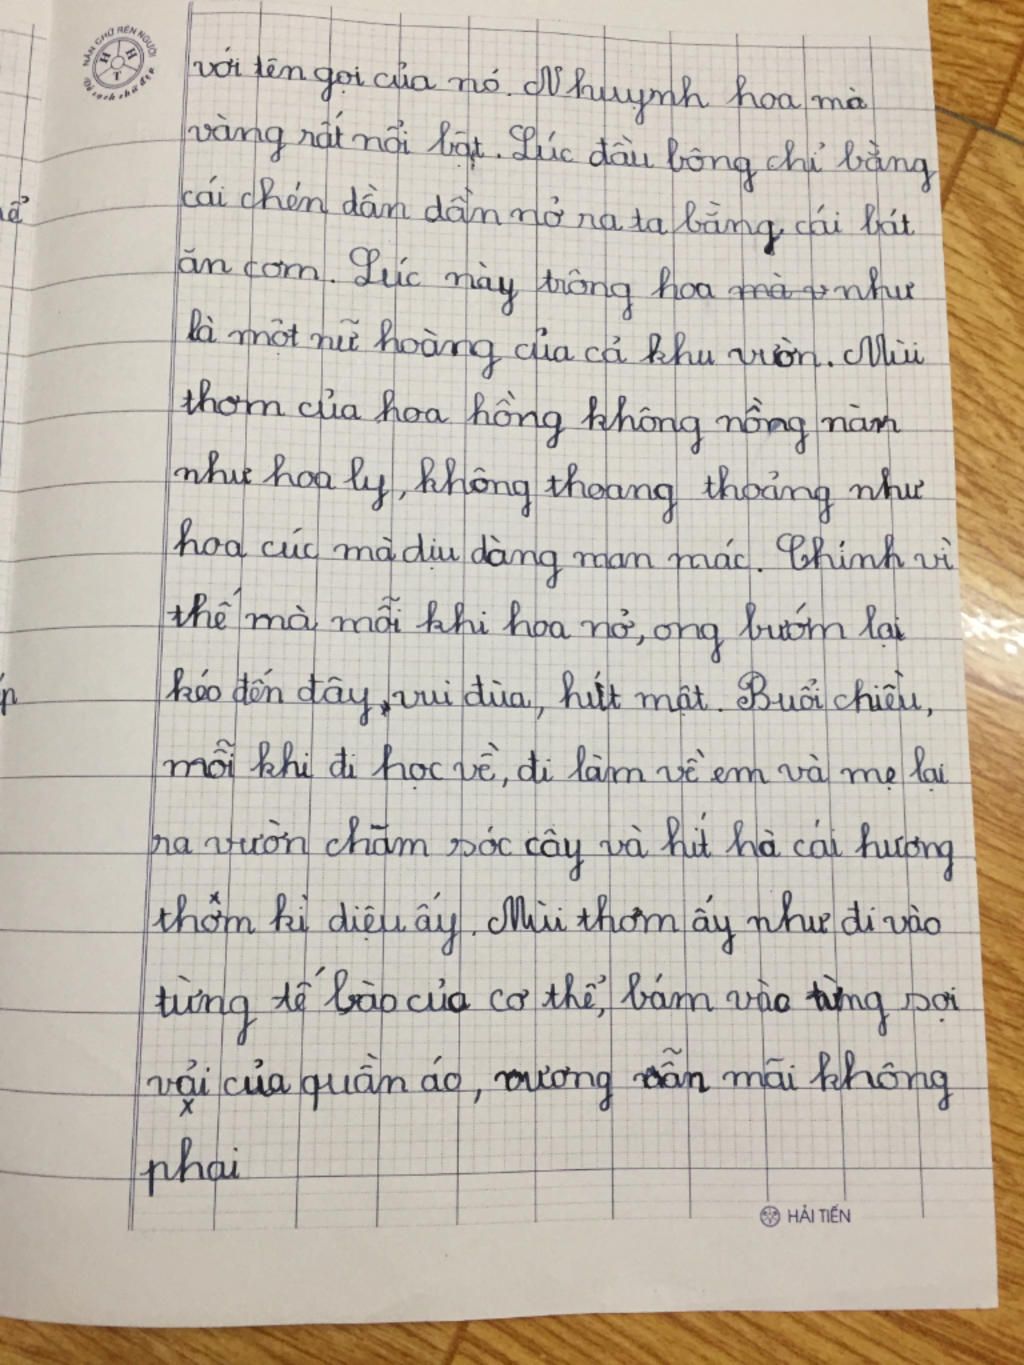 NẮN CHỮ RÈN NGƯỜI
H H T
Vở sạch chữ đẹp
với tên gọi của nó. Nhuỵnh hoa mà
vàng rất nổi bật. Lúc đầu bông chỉ bằng
cái chén dần dần nở ra ta bằng cái bát
ăn cơm. Lúc này trông hoa mà v như
là một nữ hoàng của cả khu vườn. Mùi
thơm của hoa hồng không nồng nàn
như hoa ly, không thoang thoảng như
hoa cúc mà dịu dàng man mác. Chính vì
thế mà mỗi khi hoa nở, ong bướm lại
kéo đến đây, vui đùa, hút mật. Buổi chiều,
mỗi khi đi học về, đi làm về em và mẹ lại
ra vườn chăm sóc cây và hít hà cái hương
thơm kì diệu ấy. Mùi thơm ấy như đi vào
từng tế bào của cơ thể, bám vào từng sợi
vải của quần áo, vương vẫn mãi không
phai
HẢI TIẾN